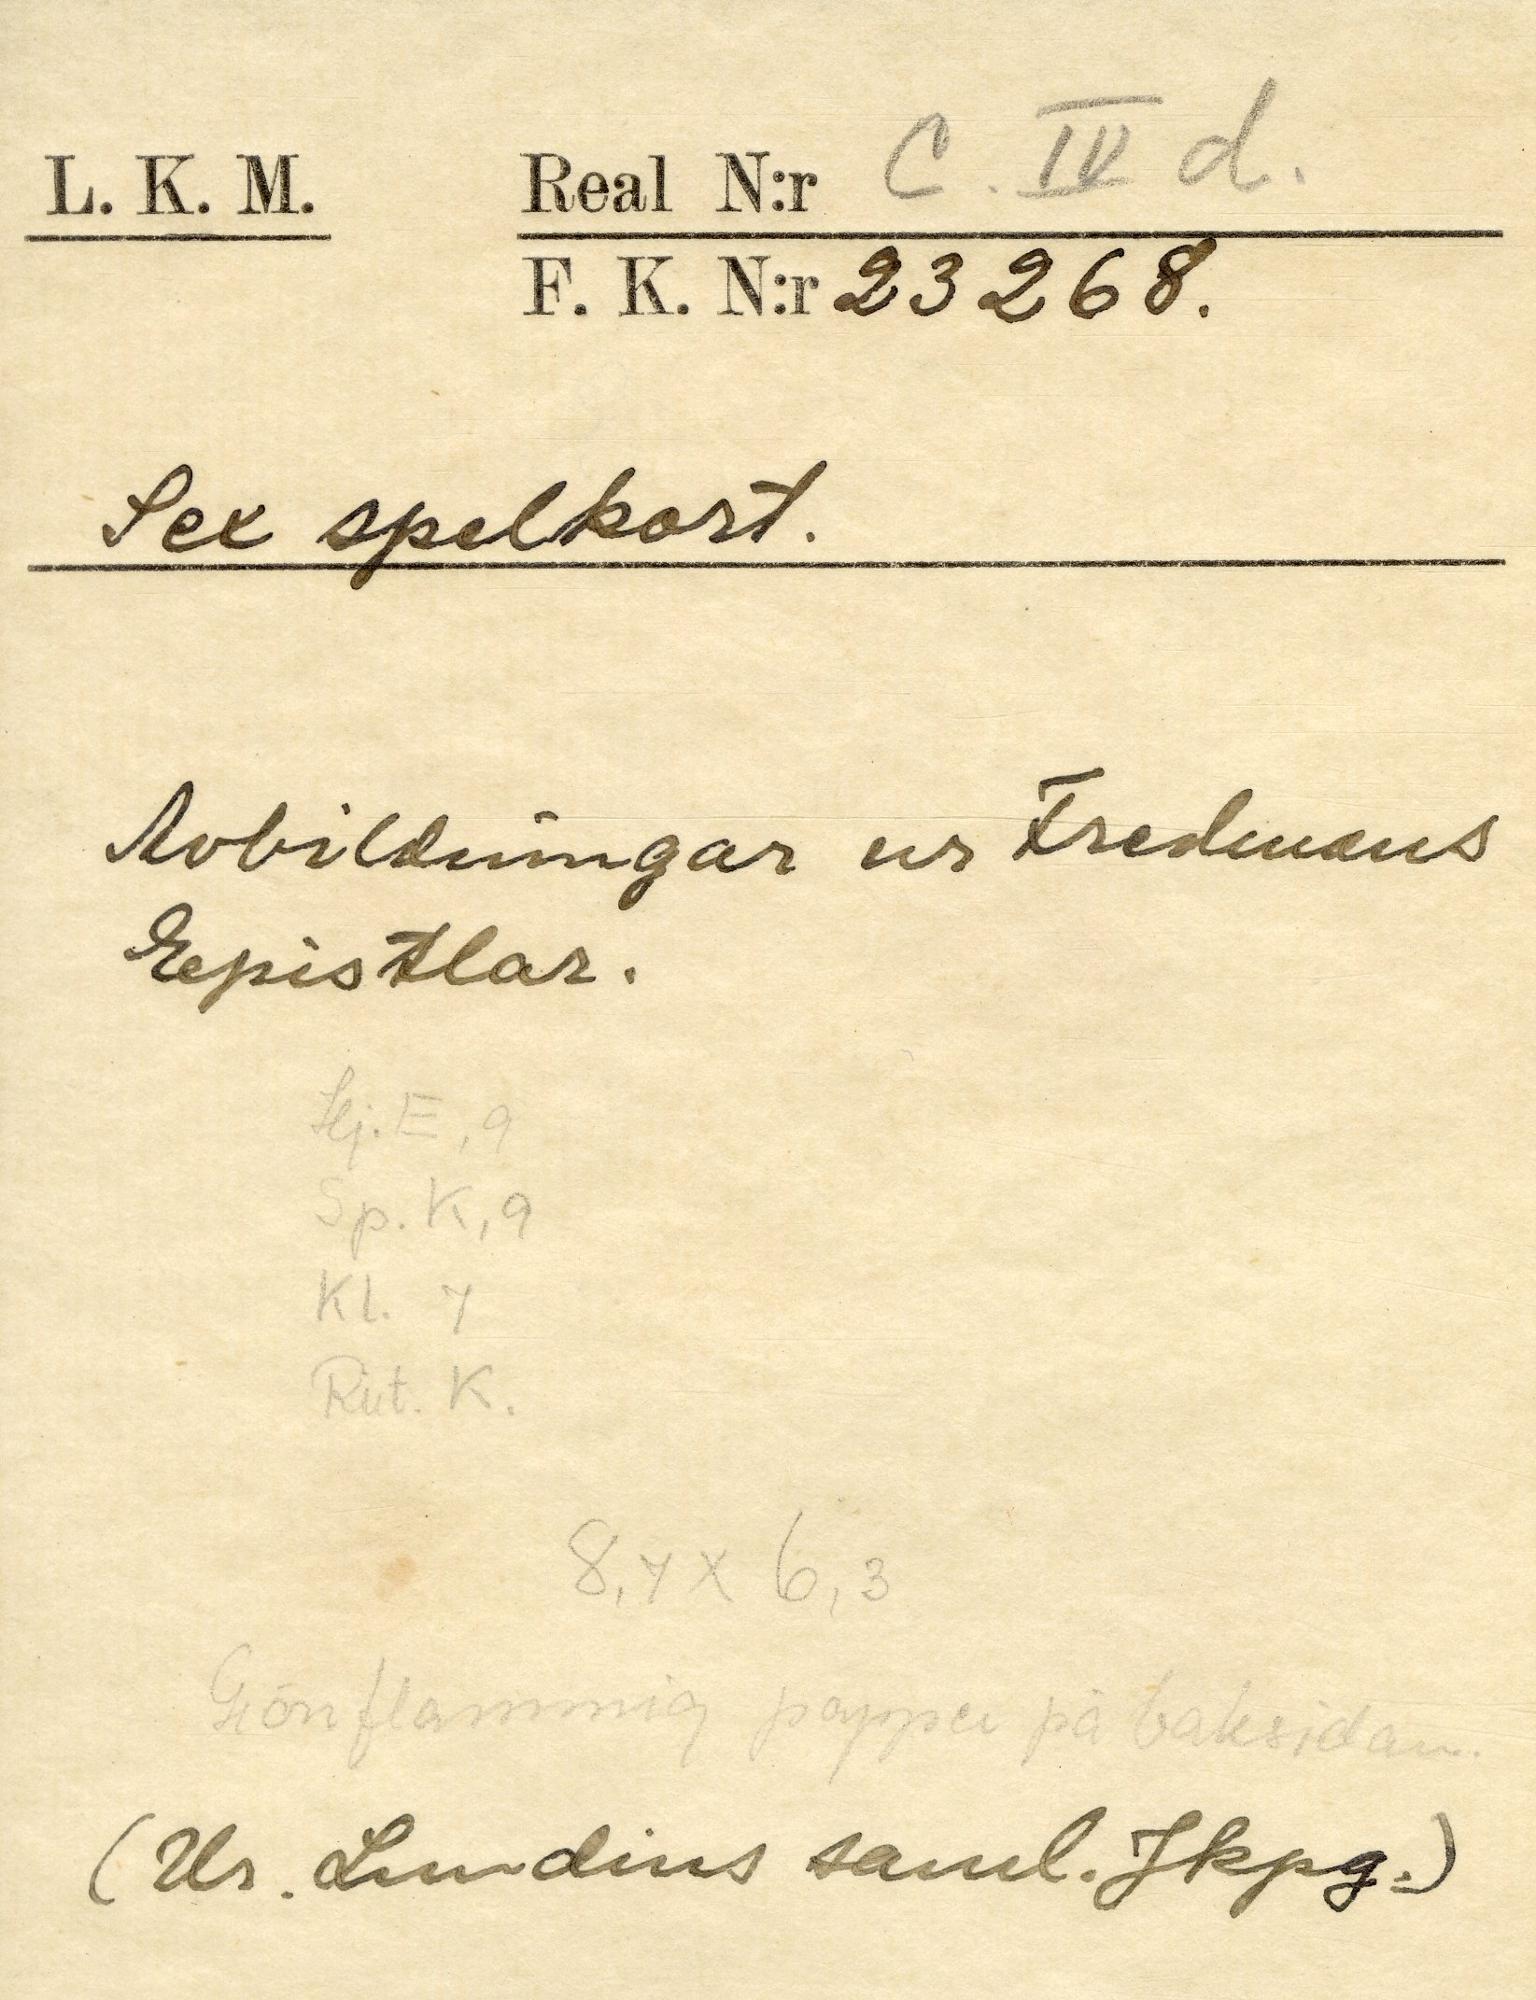 L. K. M. Real N:r C. IV d.
F. K. N:r 23268.
Sex spelkort.
Avbildningar ur Fredmans
Epistlar.
Hj. E, 9
Sp. K, 9
Kl. 7
Rut. K.
8,7 x 6,3
Grönflammig papper på baksidan.
(Ur. Lundins saml. Jkpg.)